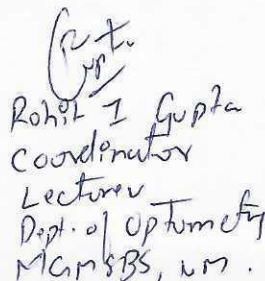 Rohit I Gupta
Coordinator
Lecturer
Dept. of Optometry
MGMSBS, NM.